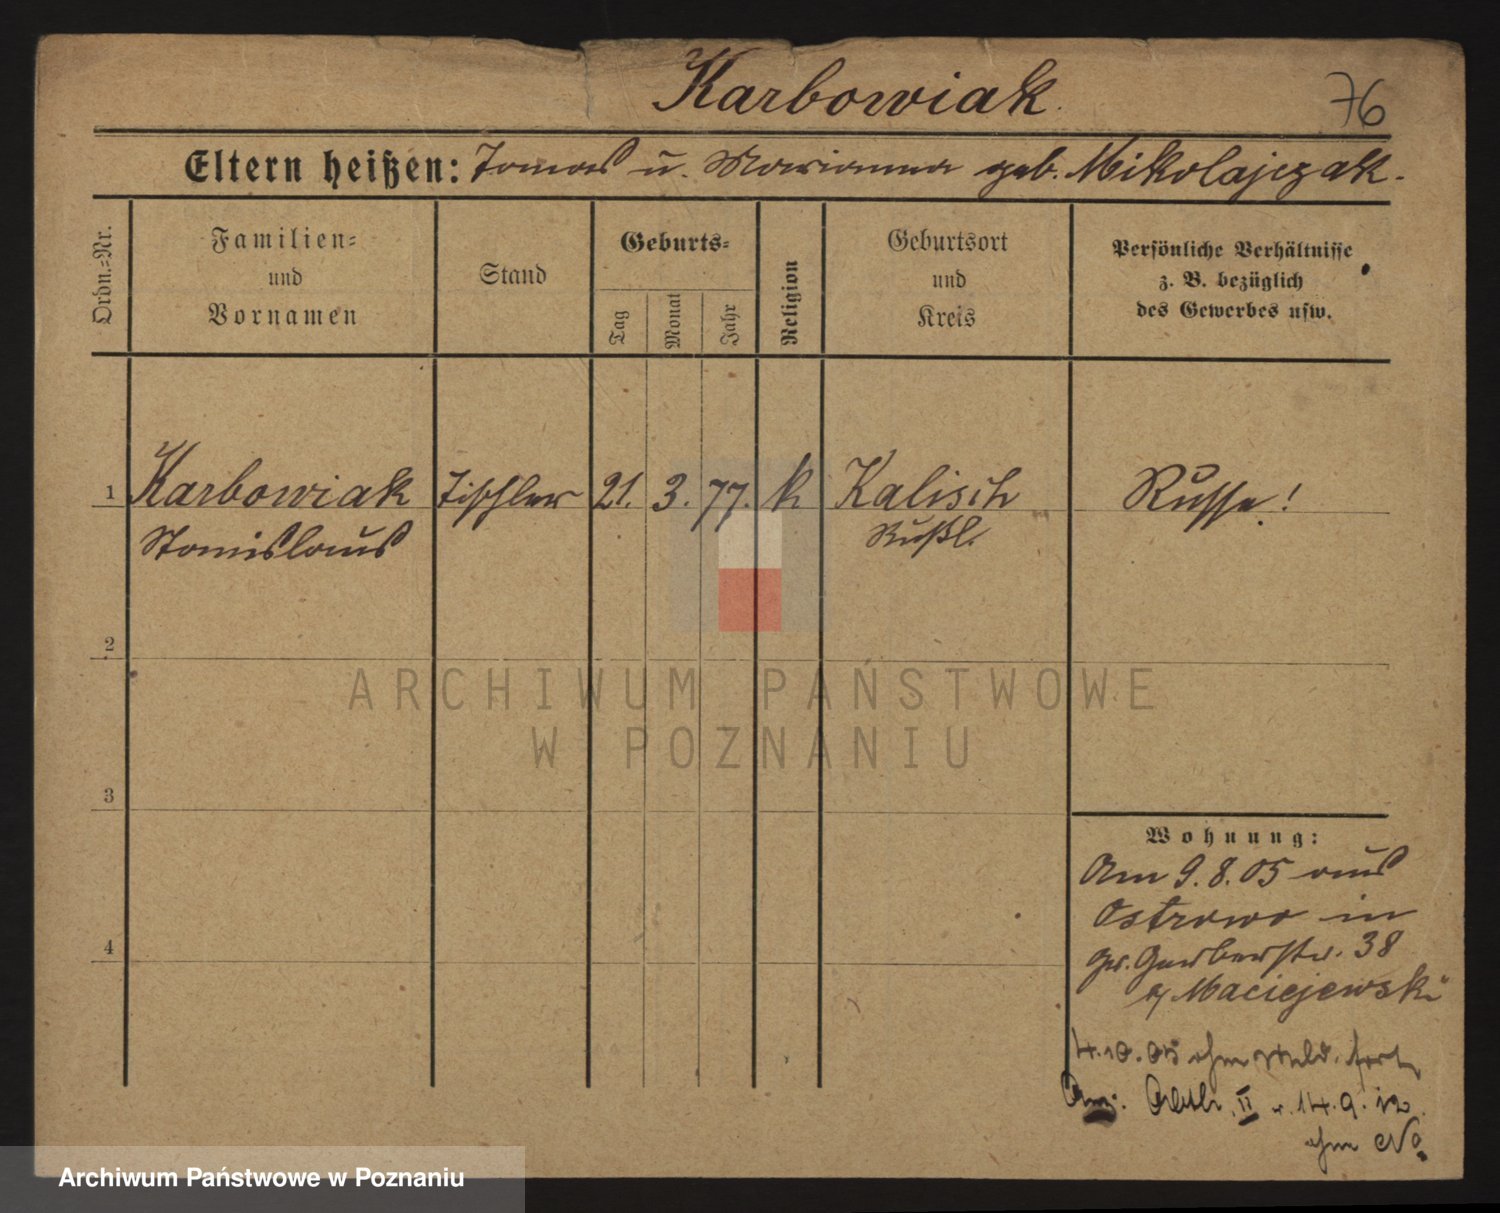 Karbowiak.
76
Eltern heißen: Tomas u. Marianna geb. Mikolajczak.
Ordn.=Nr.
Familien=
und
Vornamen
Stand
Geburts=
Tag
Monat
Jahr
Religion
Geburtsort
und
Kreis
Persönliche Verhältnisse
z. B. bezüglich
des Gewerbes usw.
1 Karbowiak Tischler 21. 3. 77. k Kalisch Russe!
Stanislaus Rußl.
2
3
4
Wohnung:
Am 9.8.05 aus
Ostrowo in
Gr. Gerberstr. 38
Maciejewski
4.10.05 ohne Meld. fort
II v. 14.9.12.
ohne No.
ARCHIWUM PAŃSTWOWE
W POZNANIU
Archiwum Państwowe w Poznaniu